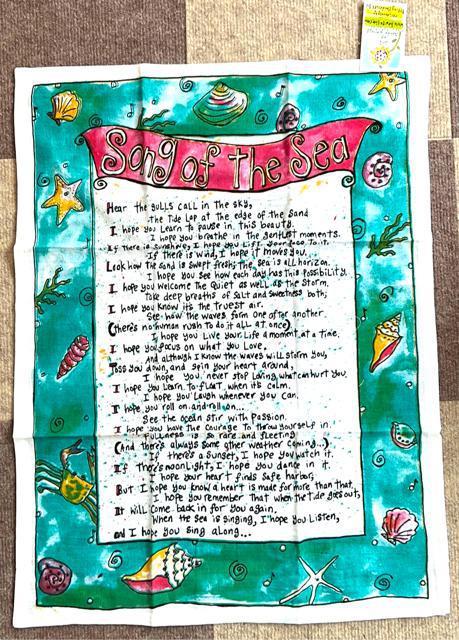 Song of the Sea
Hear the gulls call in the sky,
the Tide Lap at the edge of the Sand
I hope you Learn to pause in this beauty.
I hope you breathe in the gentlest moments.
If there is sunshine, I hope you Lift your face To it.
If there is wind, I hope it moves you...
Look how The sand is swept fresh; the sea is all horizon.
I hope you see how each day has This Possibility.
I hope you welcome The Quiet as well as the Storm.
Take deep breaths of Salt and sweetness both;
I hope you know its the Truest air.
See how the waves form One after another.
(There's no human rush to do it all at once)
I hope you Live your Life a moment at a time.
I hope you focus on what you Love,
And although I know the waves will storm you,
Toss you down, and spin your heart around,
I hope you never stop Loving what can hurt you.
I hope you Learn To float, when it's calm.
I hope you laugh whenever you can.
I hope you roll on and roll on...
See the ocean stir with passion.
I hope you have the courage To throw yourself in.
Fullness is so rare and fleeting
(And there's always some other weather coming...)
If there's a Sunset, I hope you watch it.
If There's moonlight, I hope you dance in it.
I hope your heart finds safe harbor,
But I hope you know a heart is made for more than that.
I hope you remember that when the Tide goes out,
It will come back in for you again.
When the sea is singing, I hope you Listen,
and I hope you sing along...